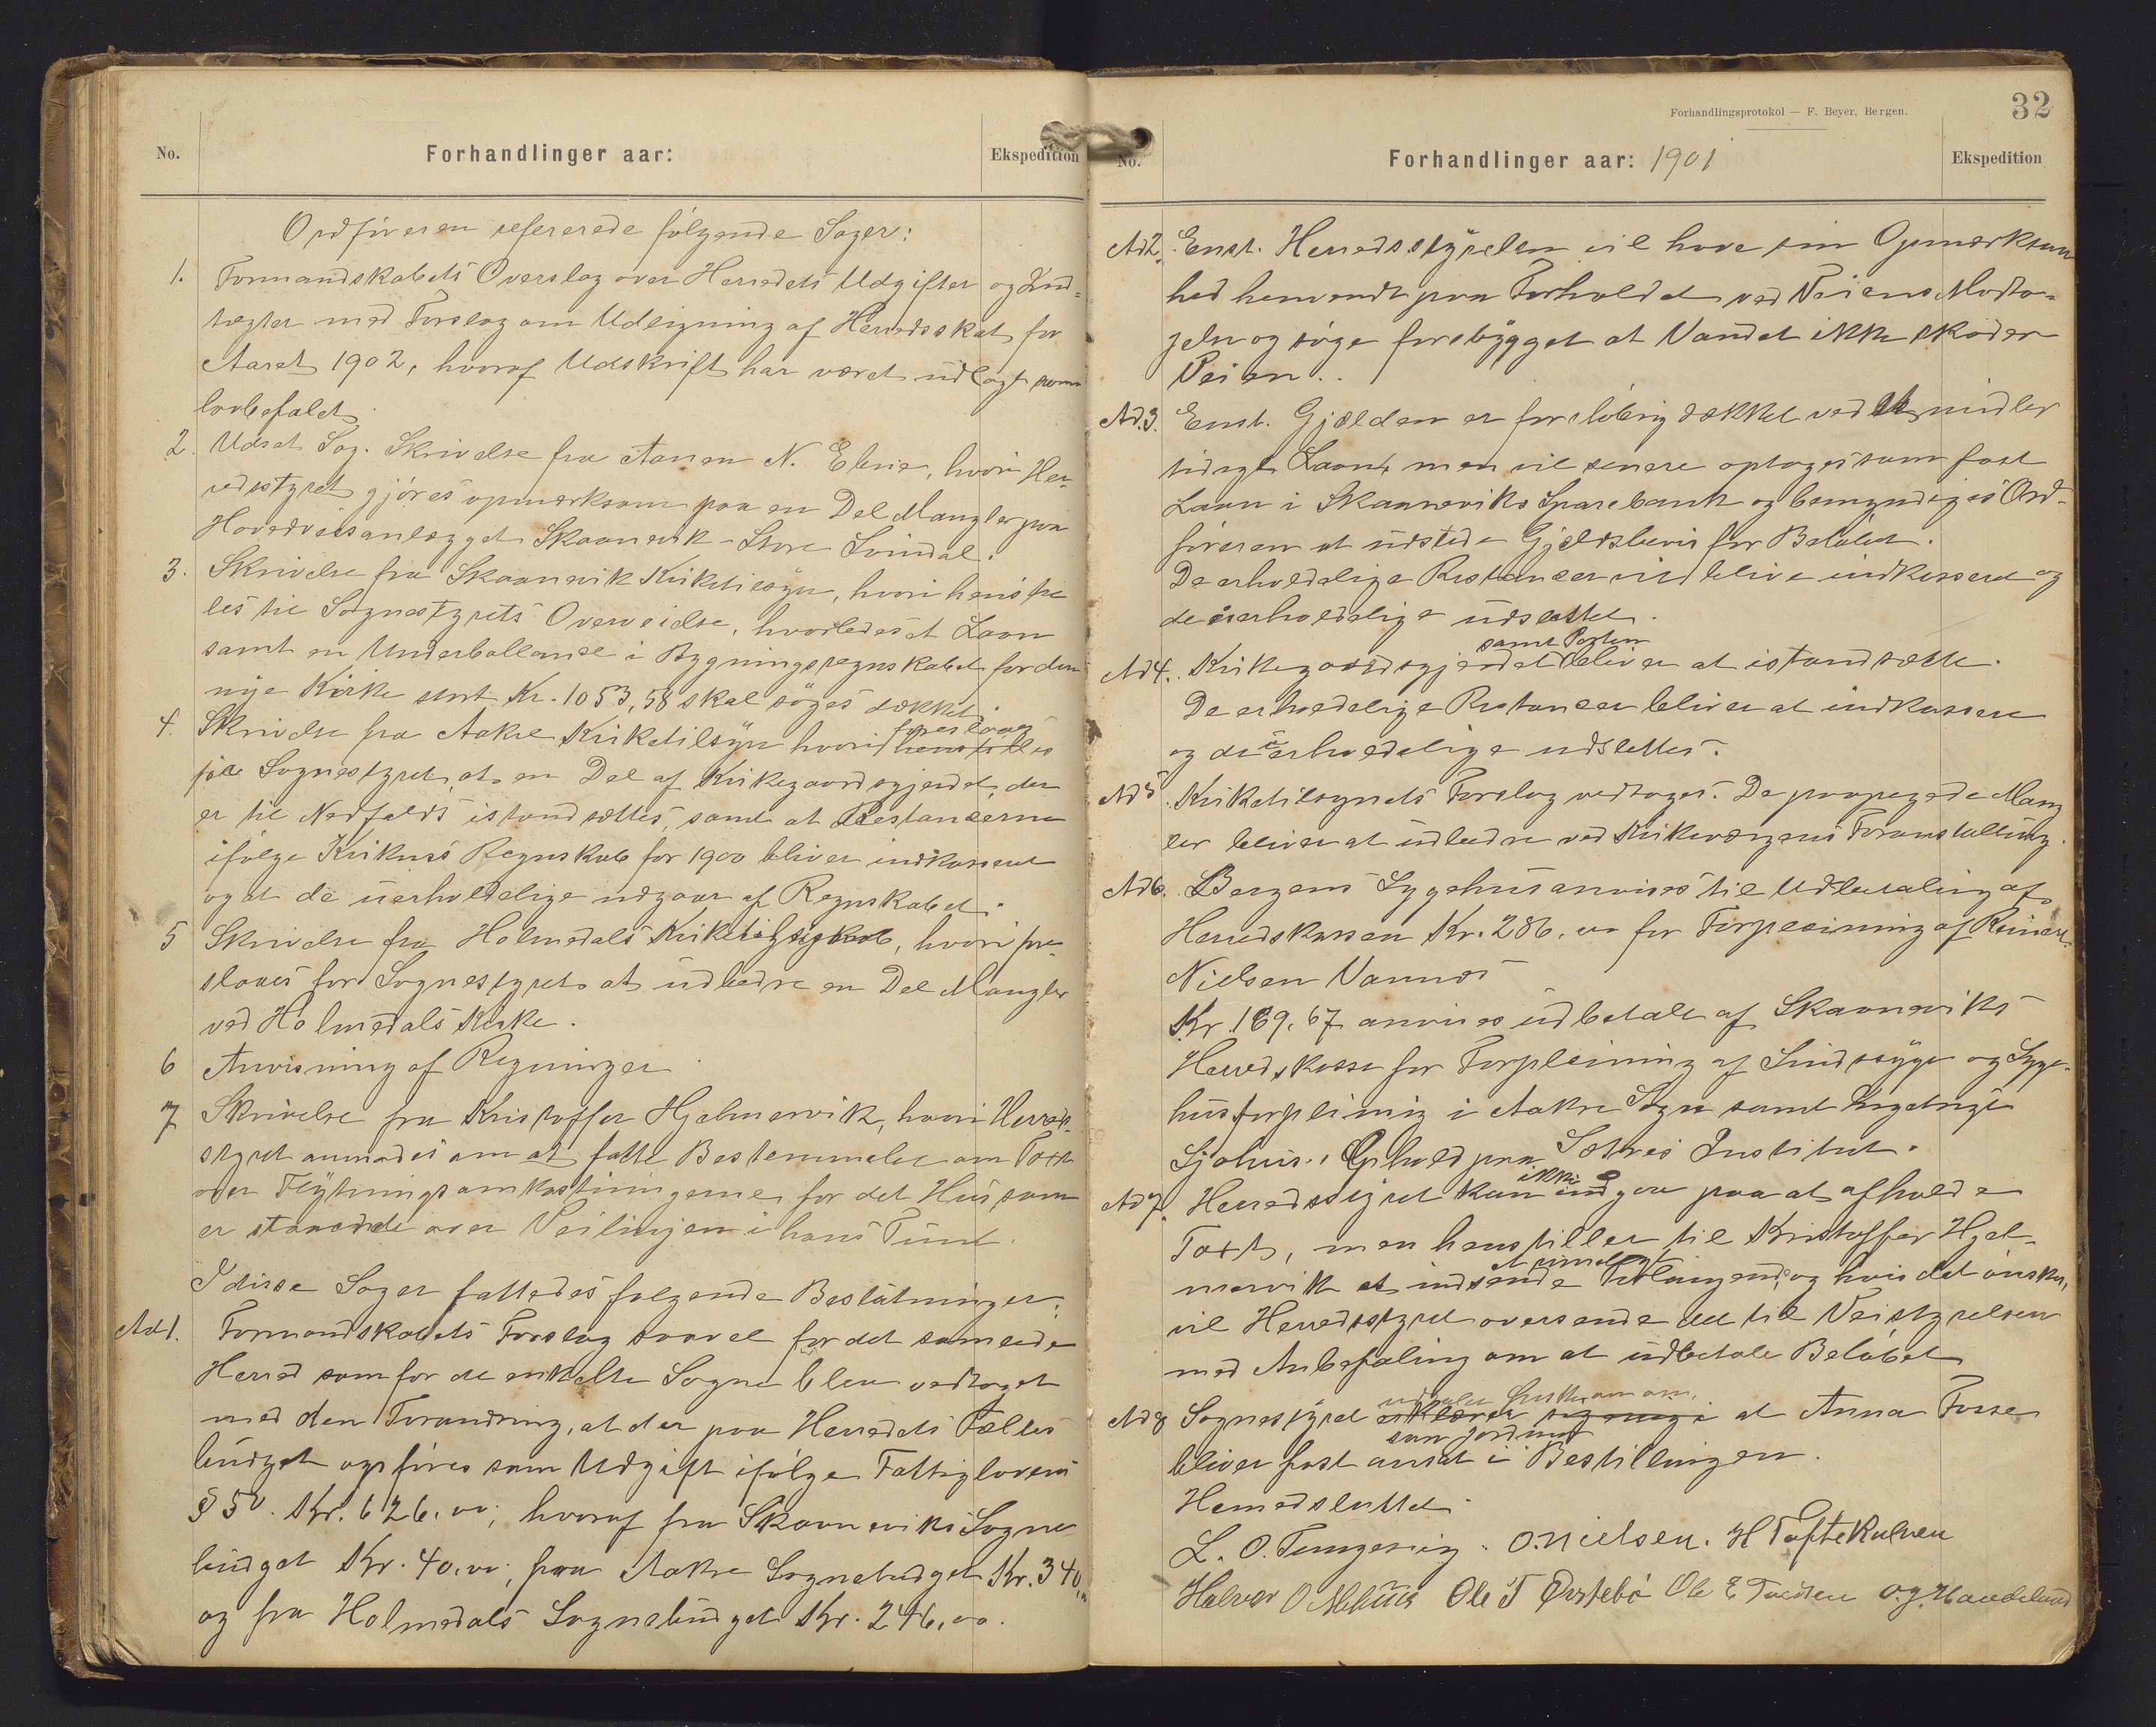 No.
Forhandlinger aar:
Ekspedition
Ordføreren refererede følgende Sager:
1. Formandskabets Overslag over Herredets Udgifter og Ind-
tægter med Forslag om Udligning af Herredsskat for
Aaret 1902, hvoraf Udskrift har været udlagt som
lovbefalet.
2. Udsat Sag. Skrivelse fra Aanen N. Ebne, hvori Her-
redsstyret gjøres opmærksom paa en Del Mangler paa
Hovedveisanlægget Skaanevik - Store Svindal.
3. Skrivelse fra Skaanevik Kirketilsyn, hvori henstil
les til Sognestyrets Overveielse, hvorledes et Laan
samt en Underballance i Bygningsregnskabet for den
nye Kirke stort Kr. 1053,58 skal søges dækket.
4. Skrivelse fra Aakre Kirketilsyn hvori foreslaaes
for Sognestyret, at en Del af Kirkegaardsgjerdet, der
er til Nedfalds istandsættes, samt at Restancerne
ifølge Kirkens Regnskab for 1900 bliver indkasseret
og at de uerholdelige udgaar af Regnskabet.
5 Skrivelse fra Holmedals Kirketilsyn, hvori fore-
slaaes for Sognestyret at udbedre en Del Mangler
ved Holmedals Kirke.
6 Anvisning af Regninger
7 Skrivelse fra Kristoffer Hjelmervik, hvori Herreds-
styret anmodes om at fatte Bestemmelse om Taxt
over Flytningsomkostningerne for det Hus som
er staaende over Veilinjen i hans Tunet.
I disse Sager fattedes følgende Beslutninger:
Ad 1. Formandskabets Forslag saavel for det samlede
Herred som for de enkelte Sogne blev vedtaget
med den Forandring, at der paa Herredets Fælles
budget opføres som Udgift ifølge Fattiglovens
§ 50. Kr. 626,00, hvoraf fra Skaaneviks Sogne
budget Kr. 40.00, fra Aakre Sognebudget Kr. 340,00
og fra Holmedals Sognebudget Kr. 246,00.
Forhandlingsprotokol — F. Beyer, Bergen.
32
No.
Forhandlinger aar: 1901
Ekspedition
Ad 2. Enst. Herredsstyrelsen vil have sin Opmærksom
hed henvendt paa Forholdet ved Veiens Modta-
gelse og søge forebygget at Vandet ikke skader
Veien.
Ad. 3. Enst. Gjælden er foreløbig dækket ved midler
tidigt Laan, men vil senere optages som fast
Laan i Skaaneviks Sparebank og bemyndiges Ord-
føreren at udstede Gjældsbevis for Beløbet.
De erholdelige Restancer vil blive indkasseret og
de uerholdelige udslettet.
Ad 4. Kirkegaardsgjerdet samt Porten bliver at istandsætte.
De erholdelige Restancer bliver at indkassere
og de uerholdelige udslettes.
Ad 5. Kirketilsynets Forslag vedtoges. De paapegede Mang
ler bliver at udbedre ved Kirkeværgens Foranstaltning.
Ad 6. Bergens Sygehus anvises til Udbetaling af
Herredskassen Kr. 286.00 for Forpleining af
Nielsen Vannes
Kr. 189,67 anvises udbetalt af Skaaneviks
Herredskasse for Forpleining af Sindssyge og Syge-
husforpleining i Aakre Sogn samt
Ophold paa Sæthres Institut.
Ad 7. Herredsstyret kan ikke indgaa paa at afholde
Taxt, men henstiller til Kristoffer Hjel-
mervik at indsende et rimeligt Forlangende, og hvis det ønskes,
vil Herredsstyret oversende det til Veistyrelsen
med Anbefaling om at udbetale Beløbet
Ad 8 Sognestyret udtaler om at Anna Fosse
bliver fast ansat som Jordmor i Bestillingen.
Hermed sluttet.
L. O. Tungesvig. O. Nielsen. H Toftekalven
Halvor O Milje Ole T Ørstebø Ole E O. J. Haaeland